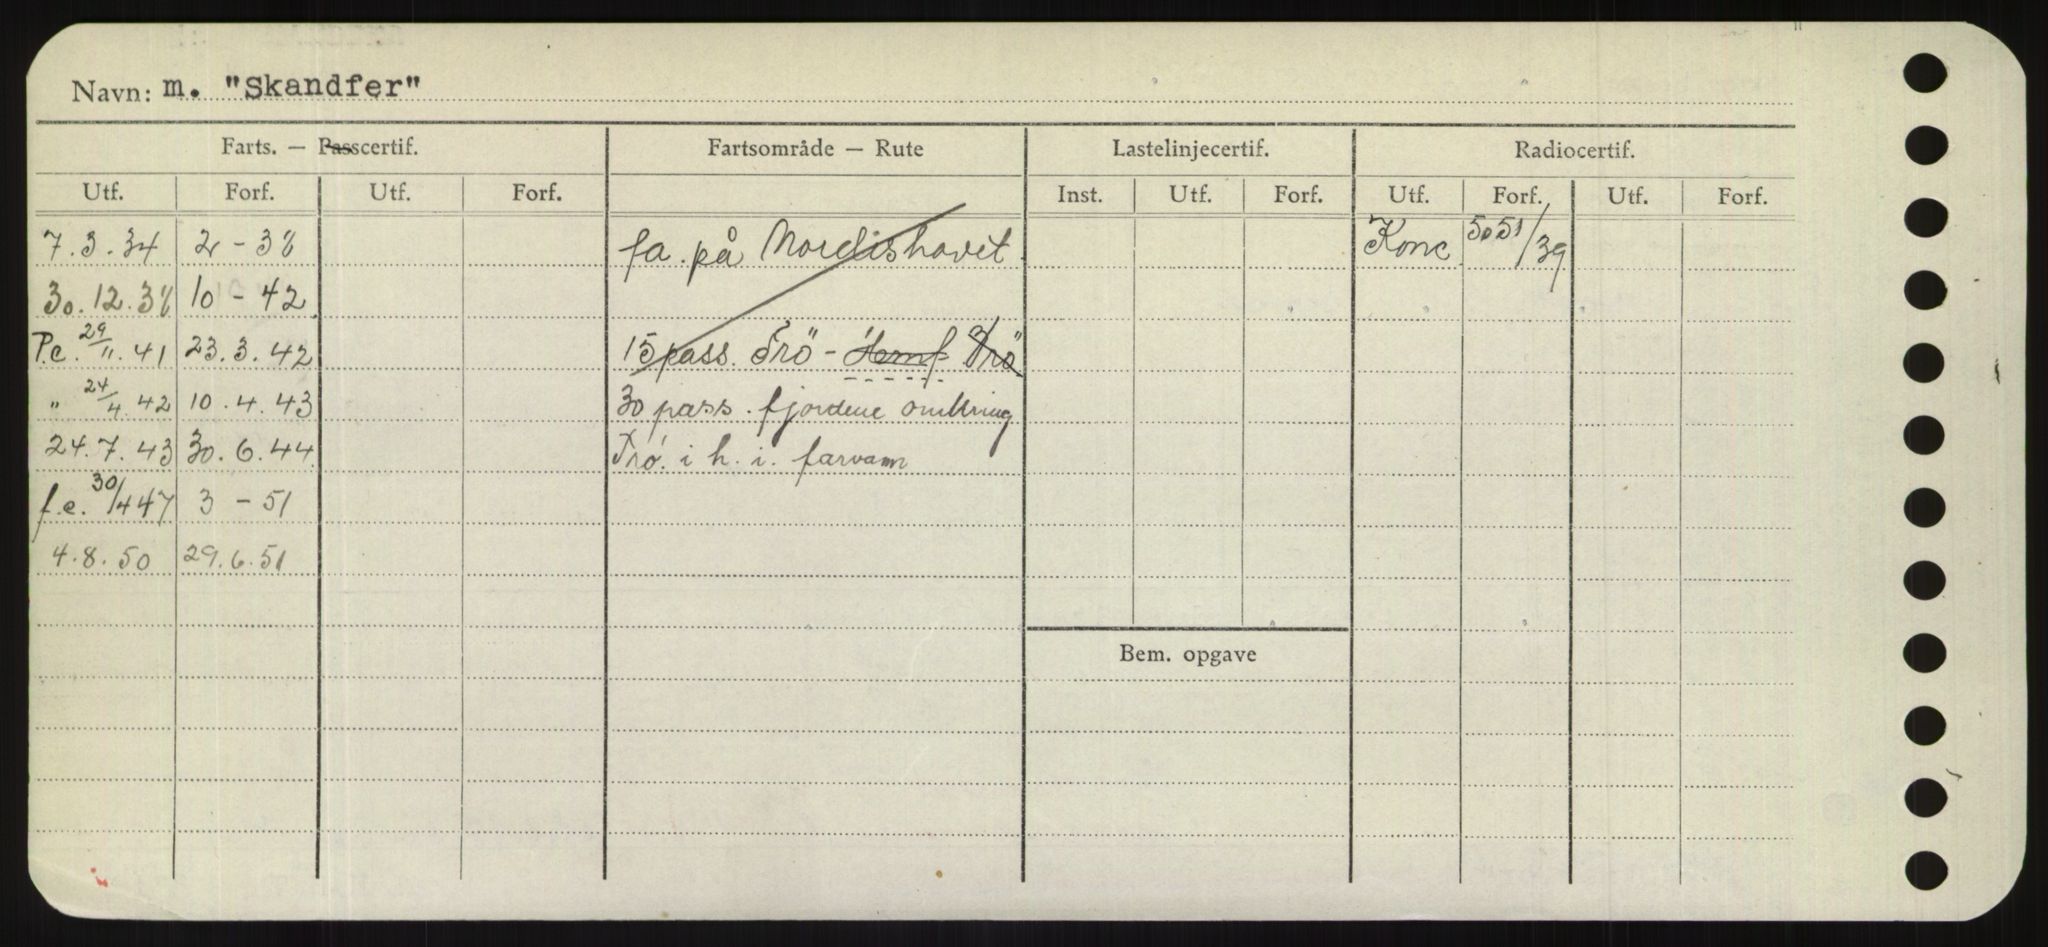 Navn: m. "Skandfer"
Farts. — Passcertif. Fartsområde — Rute Lastelinjecertif. Radiocertif.
Utf. Forf. Utf. Forf. Inst. Utf. Forf. Utf. Forf. Utf. Forf.
7.3.34 2 - 38 fa. på Nordishavet Konc 5051/39
30.12.38 10 - 42
P.c. 29/11.41 23.3.42 15 pass. Trö - Hemf Trö
" 24/4.42 10.4.43 30 pass. fjordene omkring
24.7.43 30.6.44 Trö. i h. i. farvann
f.c. 30/4 47 3 - 51
4.8.50 29.6.51
Bem. opgave